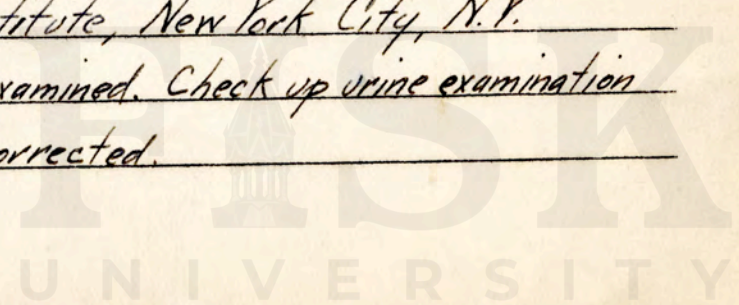 titute, New York City, N.Y.
xamined. Check up urine examination
orrected.
FISK
UNIVERSITY